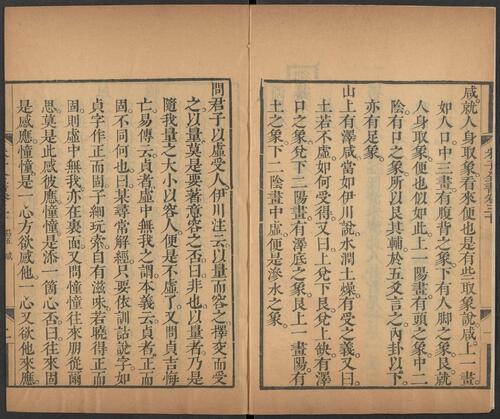 咸就人身取象看來便也是有些取象說咸上一畫
如人口中三畫有腹背之象下有人脚之象艮就
人身取象便也似如此上一陽畫有頭之象中二
陰有口之象所以艮其輔於五爻言之內卦以下
亦有足象
山上有澤咸當如伊川說水潤土燥有受之義又曰
土若不虛如何受得又曰上兌下艮兌上缺有澤
口之象兌下二陽畫有澤底之象艮上一畫陽有
土之象下二陰畫中虛便是滲水之象
問君子以虛受人伊川注云以量而容之擇交而受
之以量莫是要著意容之否曰非也以量者乃是
隨我量之大小以容人便是不虛了又問貞吉悔
亡易傳云貞者虛中無我之謂本義云貞者正而
固不同何也曰某尋常解經只要依訓詁說字如
貞字作正而固子細玩索自有滋味若曉得正而
固則虛中無我亦在裏面又問憧憧往來朋從爾
思莫是此感彼應憧憧是添一箇心否曰往來固
是感應憧憧是一心方欲感他一心又欲他來應